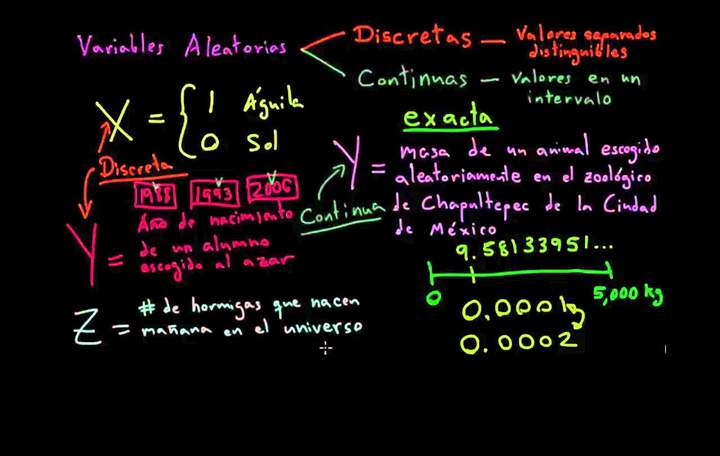 Variables Aleatorias
Discretas — Valores separados
distinguibles
Continuas — Valores en un
intervalo
X = { 1 Águila
0 Sol
Discreta
1993
2006
Y = Año de nacimiento
de un alumno
escogido al azar
Z = # de hormigas que nacen
mañana en el universo
exacta
Y = masa de un animal escogido
aleatoriamente en el zoológico
de Chapultepec de la Ciudad
de México
Continua
9.58133951...
0
5,000 kg
0.000
0.0002